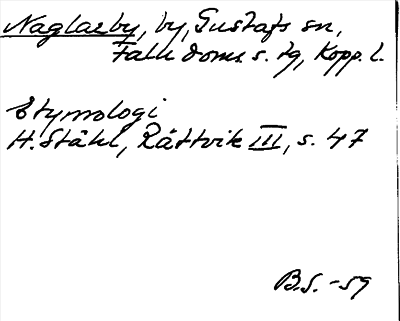 Naglarby, by, Gustafs sn,
Falu doms. s. tg, Kopp. l.
Etymologi
H. Ståhl, Rättvik III, s. 47
B.S. -59